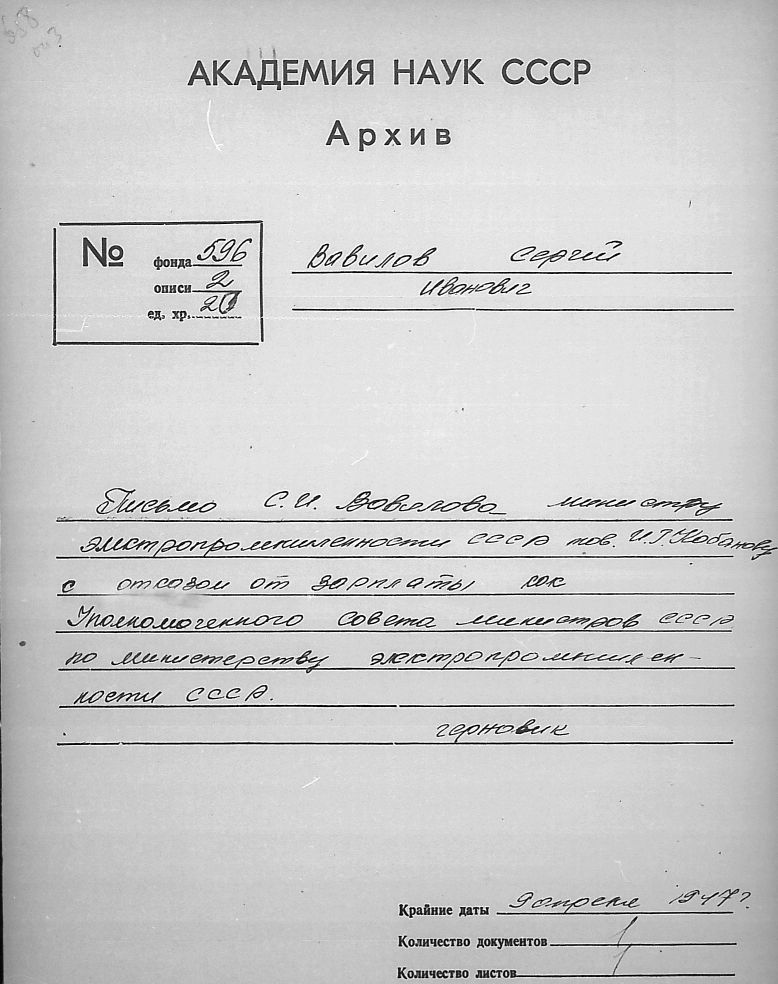 АКАДЕМИЯ НАУК СССР
Архив
№
фонда 596
описи 2
ед. хр. 20
Вавилов Сергей
Иванович
Письмо С.И. Вавилова министру
электропромышленности СССР тов. И.Г. Кабанову
с отказом от зарплаты как
Уполномоченного Совета министров СССР
по министерству электропромышлен-
ности СССР.
черновик
Крайние даты 9 апреля 1947 г.
Количество документов 1
Количество листов 1